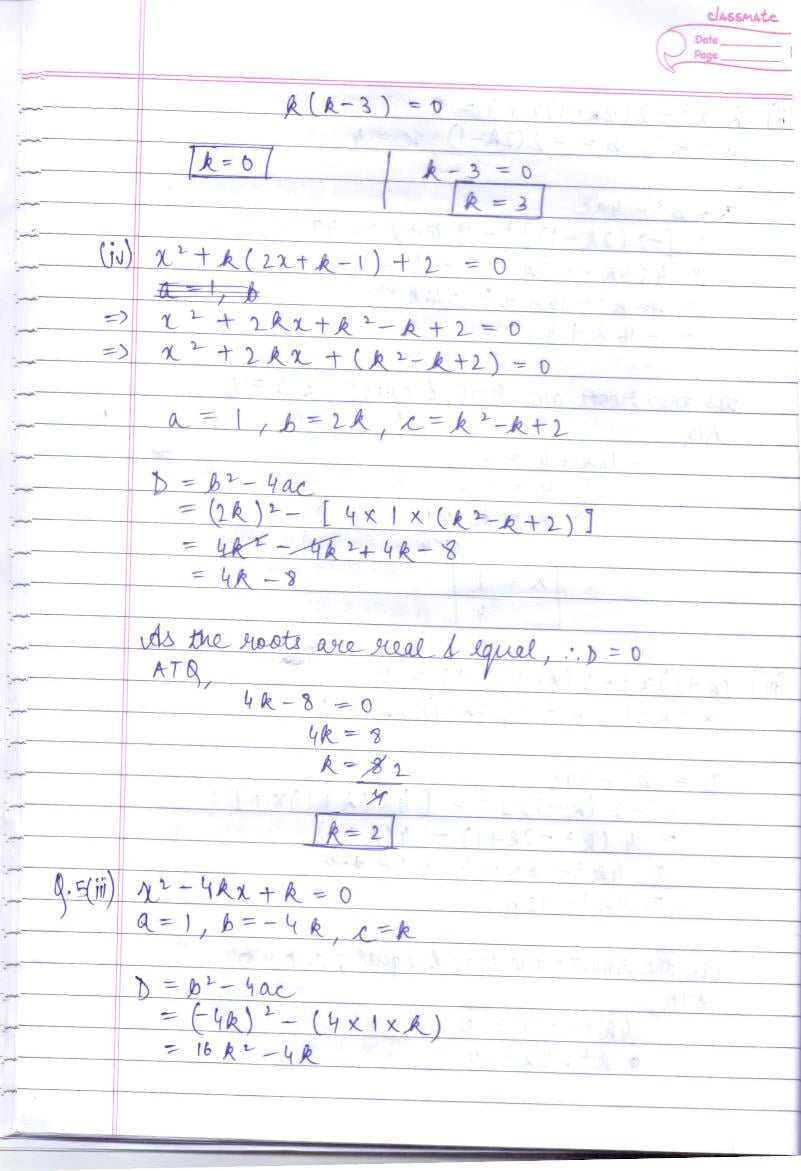 classmate
Date
Page
k(k-3) = 0
k = 0
k - 3 = 0
k = 3
(iv) x² + k(2x+k-1) + 2 = 0
a = 1, b
=> x² + 2kx + k² - k + 2 = 0
=> x² + 2kx + (k²-k+2) = 0
a = 1, b = 2k, c = k²-k+2
D = b² - 4ac
= (2k)² - [4×1×(k²-k+2)]
= 4k² - 4k² + 4k - 8
= 4k - 8
As the roots are real & equal, ∴ D = 0
ATQ,
4k - 8 = 0
4k = 8
k = 8 2
4
k = 2
Q.5(iii) x² - 4kx + k = 0
a = 1, b = -4k, c = k
D = b² - 4ac
= (-4k)² - (4×1×k)
= 16k² - 4k